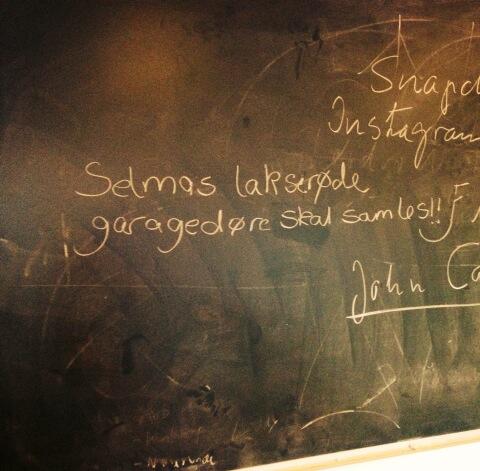 Snapc
Instagram
Selmas lakserøde
garagedøre skal samles!!
John Ca